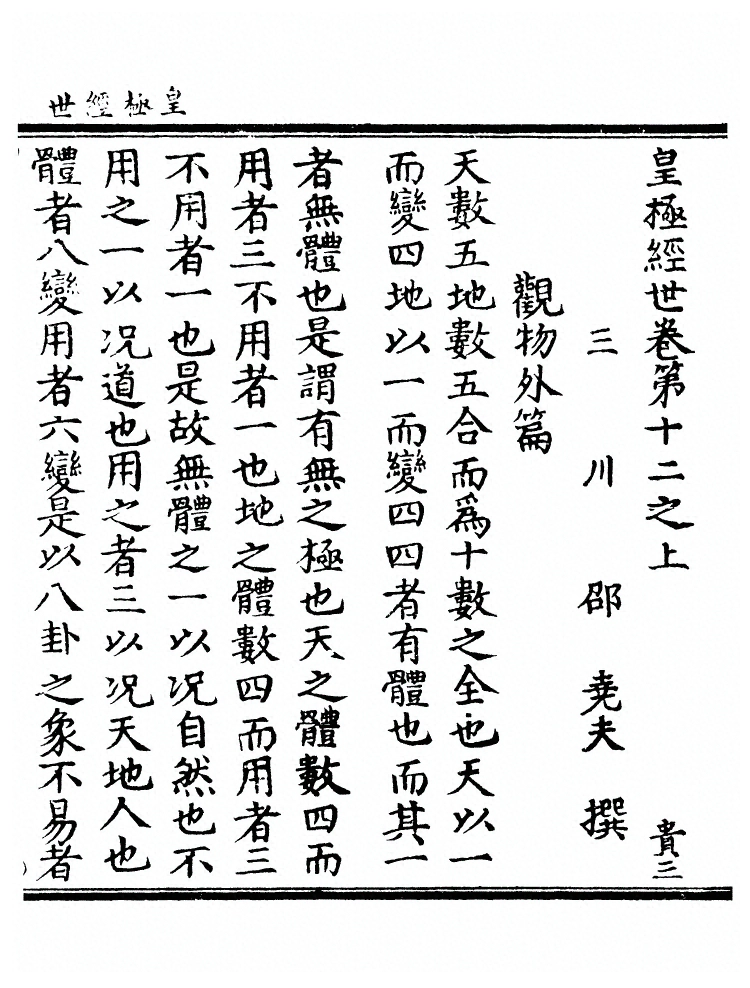 皇極經世
皇極經世卷第十二之上 貴三
三川 邵 堯夫 撰
觀物外篇
天數五地數五合而爲十數之全也天以一
而變四地以一而變四四者有體也而其一
者無體也是謂有無之極也天之體數四而
用者三不用者一也地之體數四而用者三
不用者一也是故無體之一以况自然也不
用之一以况道也用之者三以况天地人也
體者八變用者六變是以八卦之象不易者